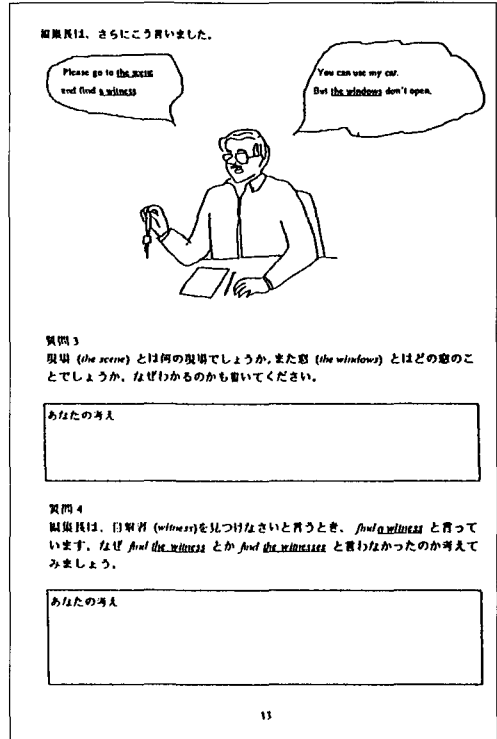 編集長は、さらにこう言いました。
Please go to the scene
and find a witness
You can use my car.
But the windows don't open.
質問 3
現場 (the scene) とは何の現場でしょうか。また窓 (the windows) とはどの窓のこ
とでしょうか。なぜわかるのかも書いてください。
あなたの考え
質問 4
編集長は、目撃者 (witness)を見つけなさいと言うとき、 find a witness と言って
います。なぜ find the witness とか find the witnesses と言わなかったのか考えて
みましょう。
あなたの考え
13